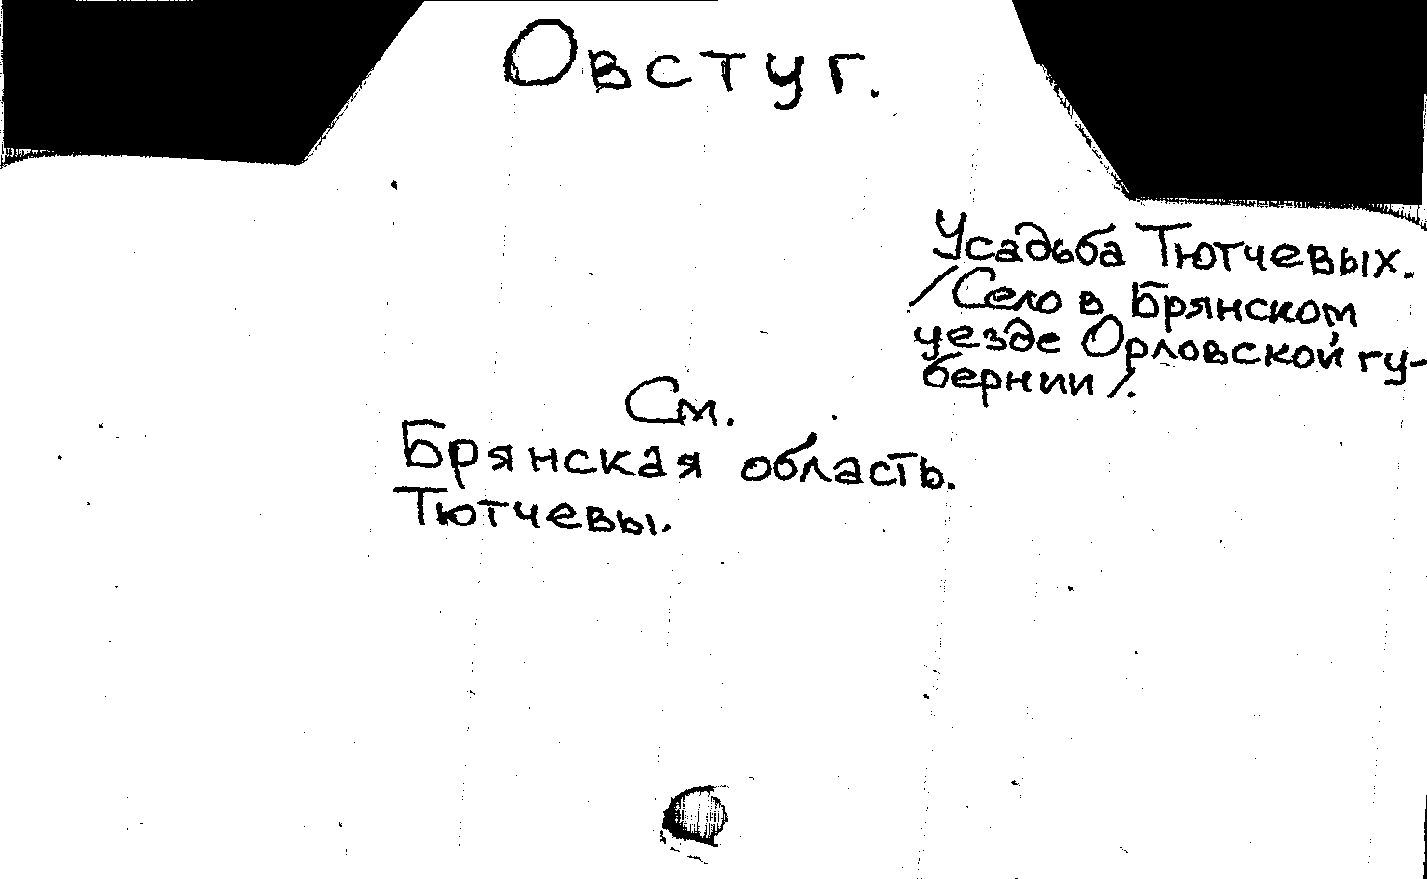 Овстуг.
Усадьба Тютчевых.
/Село в Брянском
уезде Орловской гу-
бернии/.
См.
Брянская область.
Тютчевы.